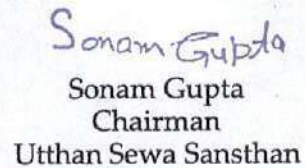 Sonam Gupta
Sonam Gupta
Chairman
Utthan Sewa Sansthan